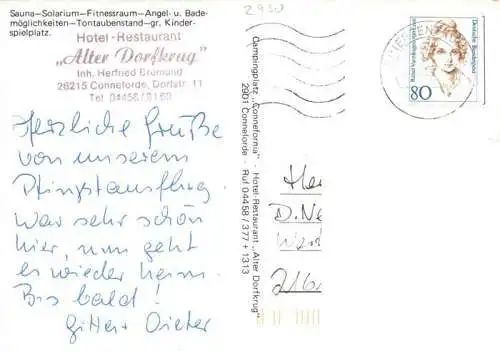 Sauna–Solarium–Fitnessraum–Angel- u. Bade-
möglichkeiten–Tontaubenstand–gr. Kinder-
spielplatz.
Hotel-Restaurant
„Alter Dorfkrug"
Inh. Herfried Brumund
26215 Conneforde, Dorfstr. 11
Tel. 04458/91 69
Herzliche Grüße
von unserem
Pfingstausflug.
War sehr schön
hier, nun geht
es wieder heim.
Bis bald!
Gitta + Dieter
Campingplatz „Connefornia" · Hotel-Restaurant „Alter Dorfkrug"
2901 Conneforde · Ruf 04458/377 + 1313
2950
Deutsche Bundespost
80
Her
D. Ne
216